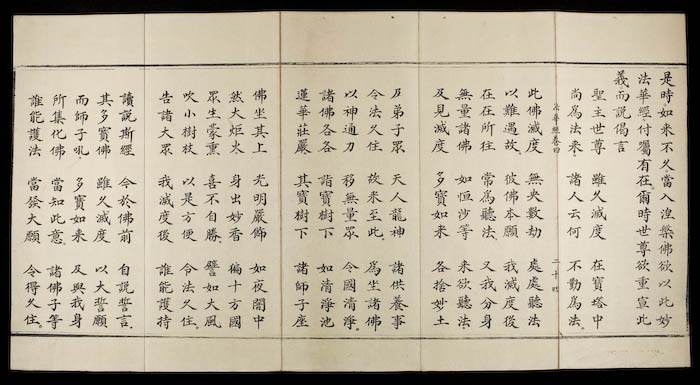 是時如来不久當入涅槃佛欲以此妙
法華經付囑有在。爾時世尊欲重宣此
義而說偈言
聖主世尊 雖久滅度 在寶塔中
尚為法来。 諸人云何 不勤為法。
法華經卷四 二十四
此佛滅度 無央數劫 處處聽法
以難遇故。 彼佛本願 我滅度後
在在所往 常為聽法。 又我分身
無量諸佛 如恒沙等 来欲聽法
及見滅度 多寶如来 各捨妙土
及弟子眾 天人龍神 諸供養事
令法久住 故来至此。 為坐諸佛
以神通力 移無量眾 令國清淨。
諸佛各各 詣寶樹下 如清淨池
蓮華莊嚴 其寶樹下 諸師子座
佛坐其上 光明嚴飾 如夜闇中
然大炬火 身出妙香 徧十方國
眾生蒙熏 喜不自勝。 譬如大風
吹小樹枝 以是方便 令法久住。
告諸大眾 我滅度後 誰能護持
讀說斯經 今於佛前 自說誓言。
其多寶佛 雖久滅度 以大誓願
而師子吼。 多寶如来 及與我身
所集化佛 當知此意。 諸佛子等
誰能護法 當發大願 令得久住。